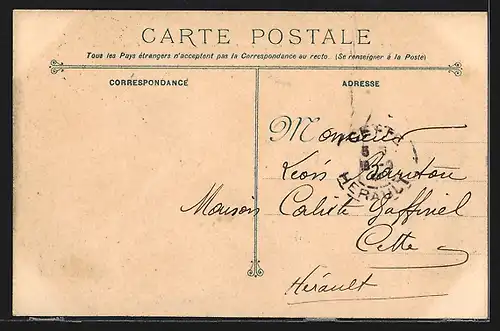 CARTE POSTALE
Tous les Pays étrangers n'acceptent pas la Correspondance au recto. (Se renseigner à la Poste)
CORRESPONDANCE
ADRESSE
Monsieur
CETTE
HERAULT
Léon
Maison Calixte Gaffinel
Cette
Hérault